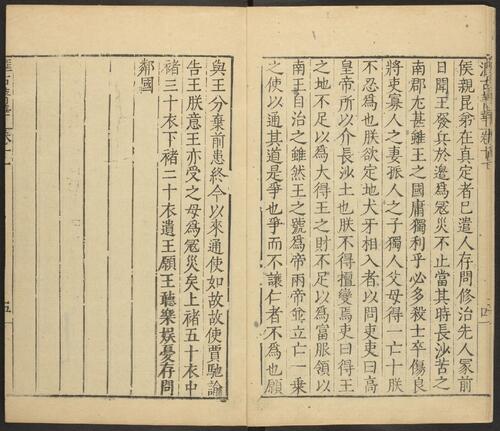 侯親昆弟在真定者已遣人存問修治先人冢前
日聞王發兵於邊為寇災不止當其時長沙苦之
南郡尤甚雖王之國庸獨利乎必多殺士卒傷良
將吏寡人之妻孤人之子獨人父母得一亡十朕
不忍為也朕欲定地犬牙相入者以問吏吏曰高
皇帝所以介長沙土也朕不得擅變焉吏曰得王
之地不足以為大得王之財不足以為富服領以
南王自治之雖然王之號為帝兩帝並立亡一乗
之使以通其道是爭也爭而不讓仁者不為也願
與王分棄前患終今以來通使如故故使賈馳諭
告王朕意王亦受之毋為寇災矣上褚五十衣中
褚三十衣下褚二十衣遺王願王聽樂娛憂存問
鄰國